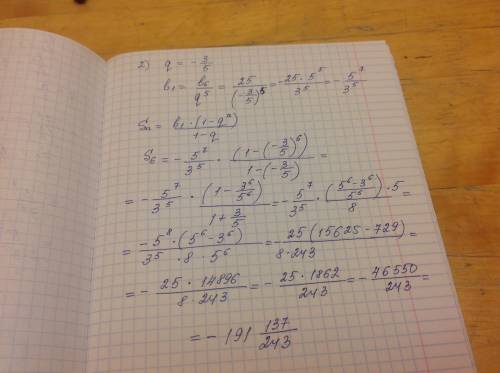 2) q = -3/5
b₁ = b₆/q⁵ = 25/(-3/5)⁵ = -25·5⁵/3⁵ = -5⁷/3⁵
Sₙ = b₁·(1-qⁿ)/1-q
S₆ = -5⁷/3⁵ · (1-(-3/5)⁶)/1-(-3/5) =
= -5⁷/3⁵ · (1-3⁶/5⁶)/1+3/5 = -5⁷/3⁵ · (5⁶-3⁶/5⁶)·5/8 =
= -5⁸·(5⁶-3⁶)/3⁵·8·5⁶ = -25(15625-729)/8·243 =
= -25·14896/8·243 = -25·1862/243 = -46550/243 =
= -191 137/243